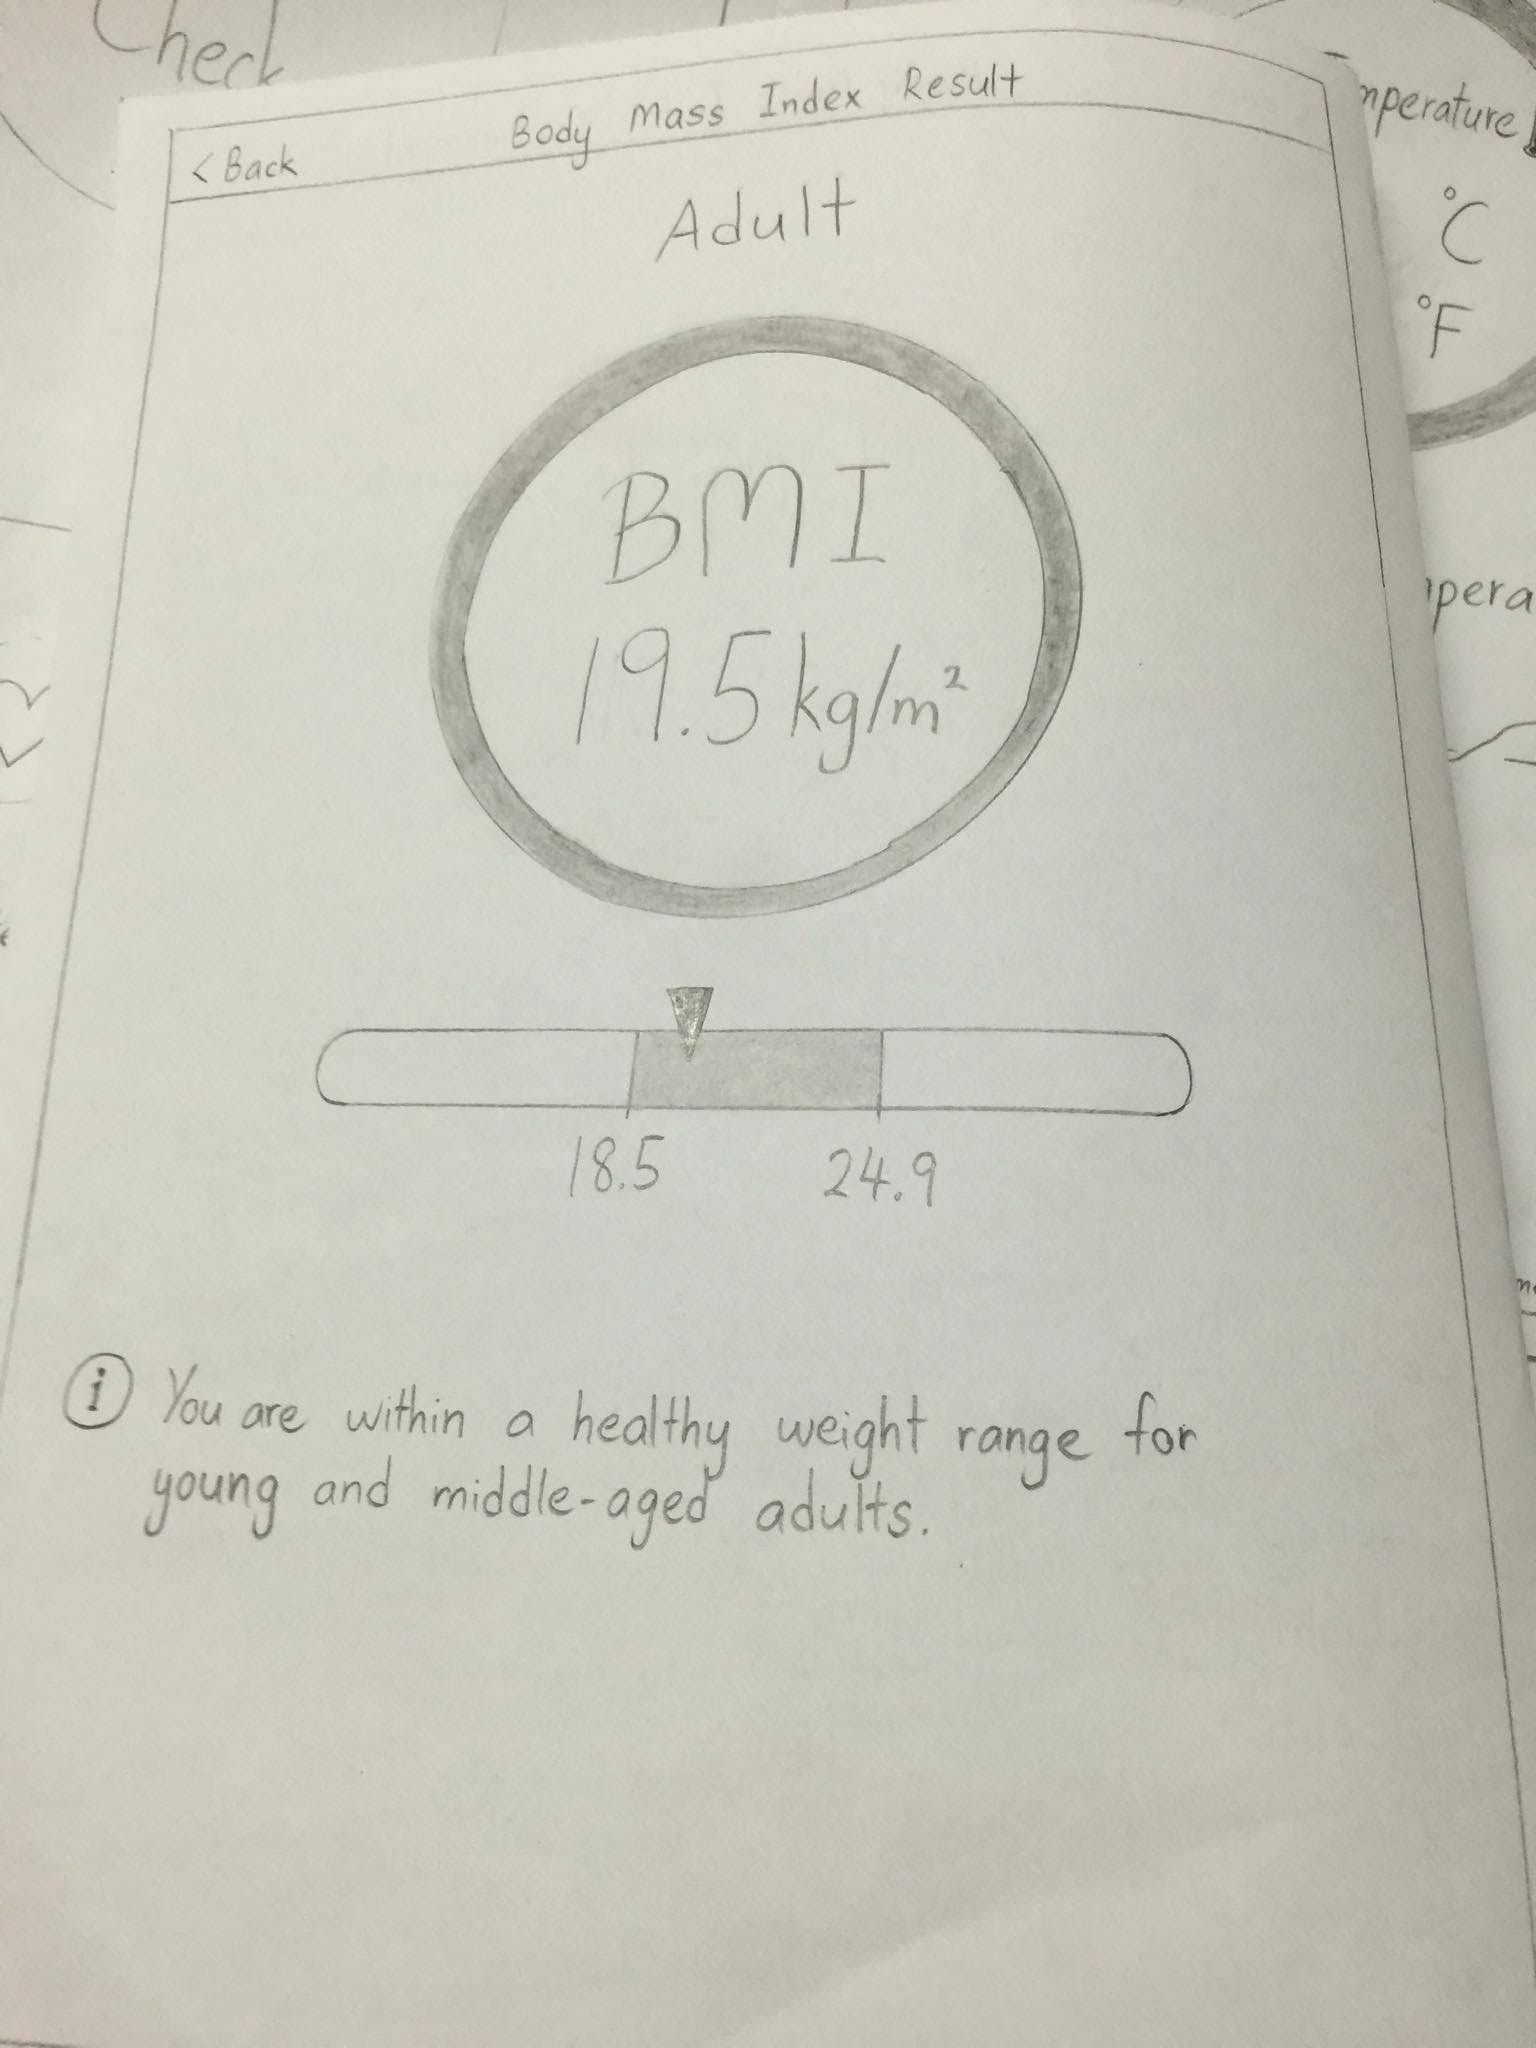 Check
Body Mass Index Result
< Back
Adult
BMI
19.5 kg/m²
18.5
24.9
i You are within a healthy weight range for
young and middle-aged adults.
°C
°F